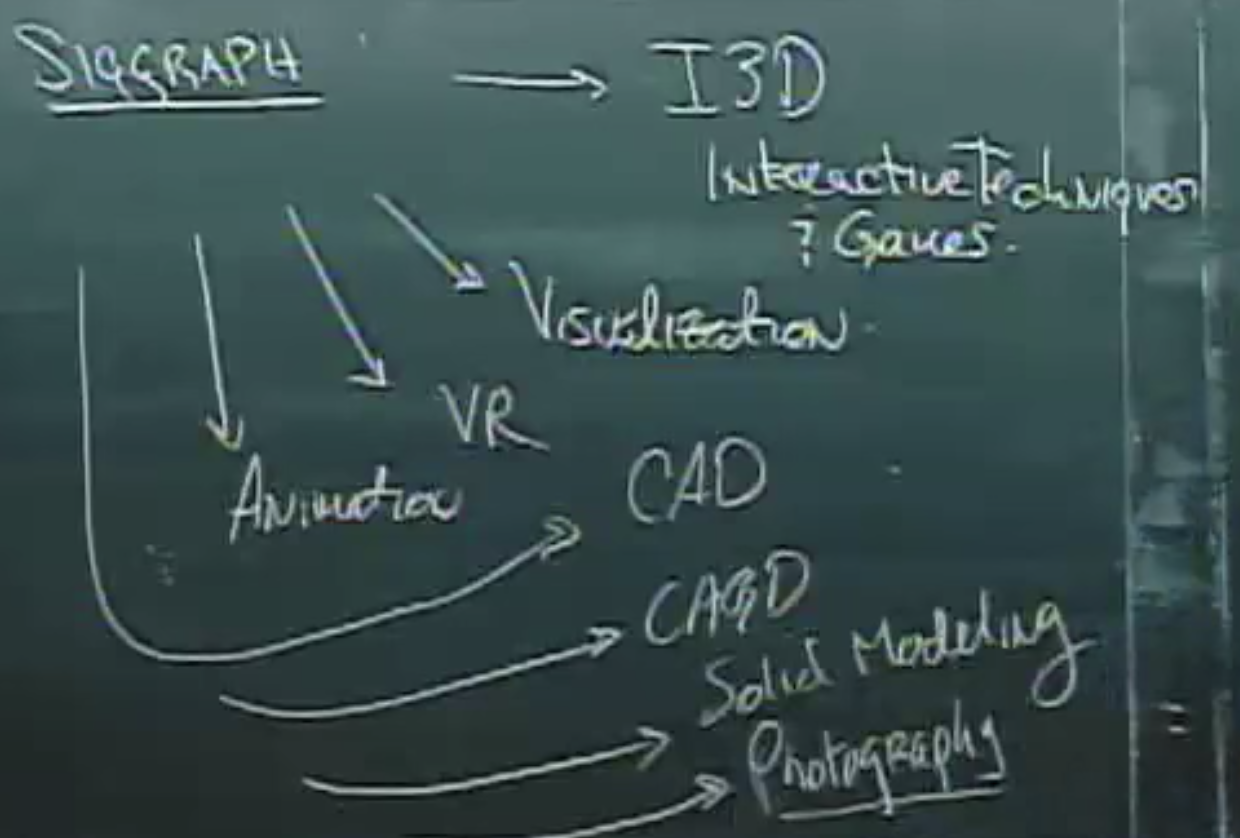 SIGGRAPH
I3D
Interactive Techniques
& Games.
Visualization
VR
Animation
CAD
CAGD
Solid Modeling
Photography